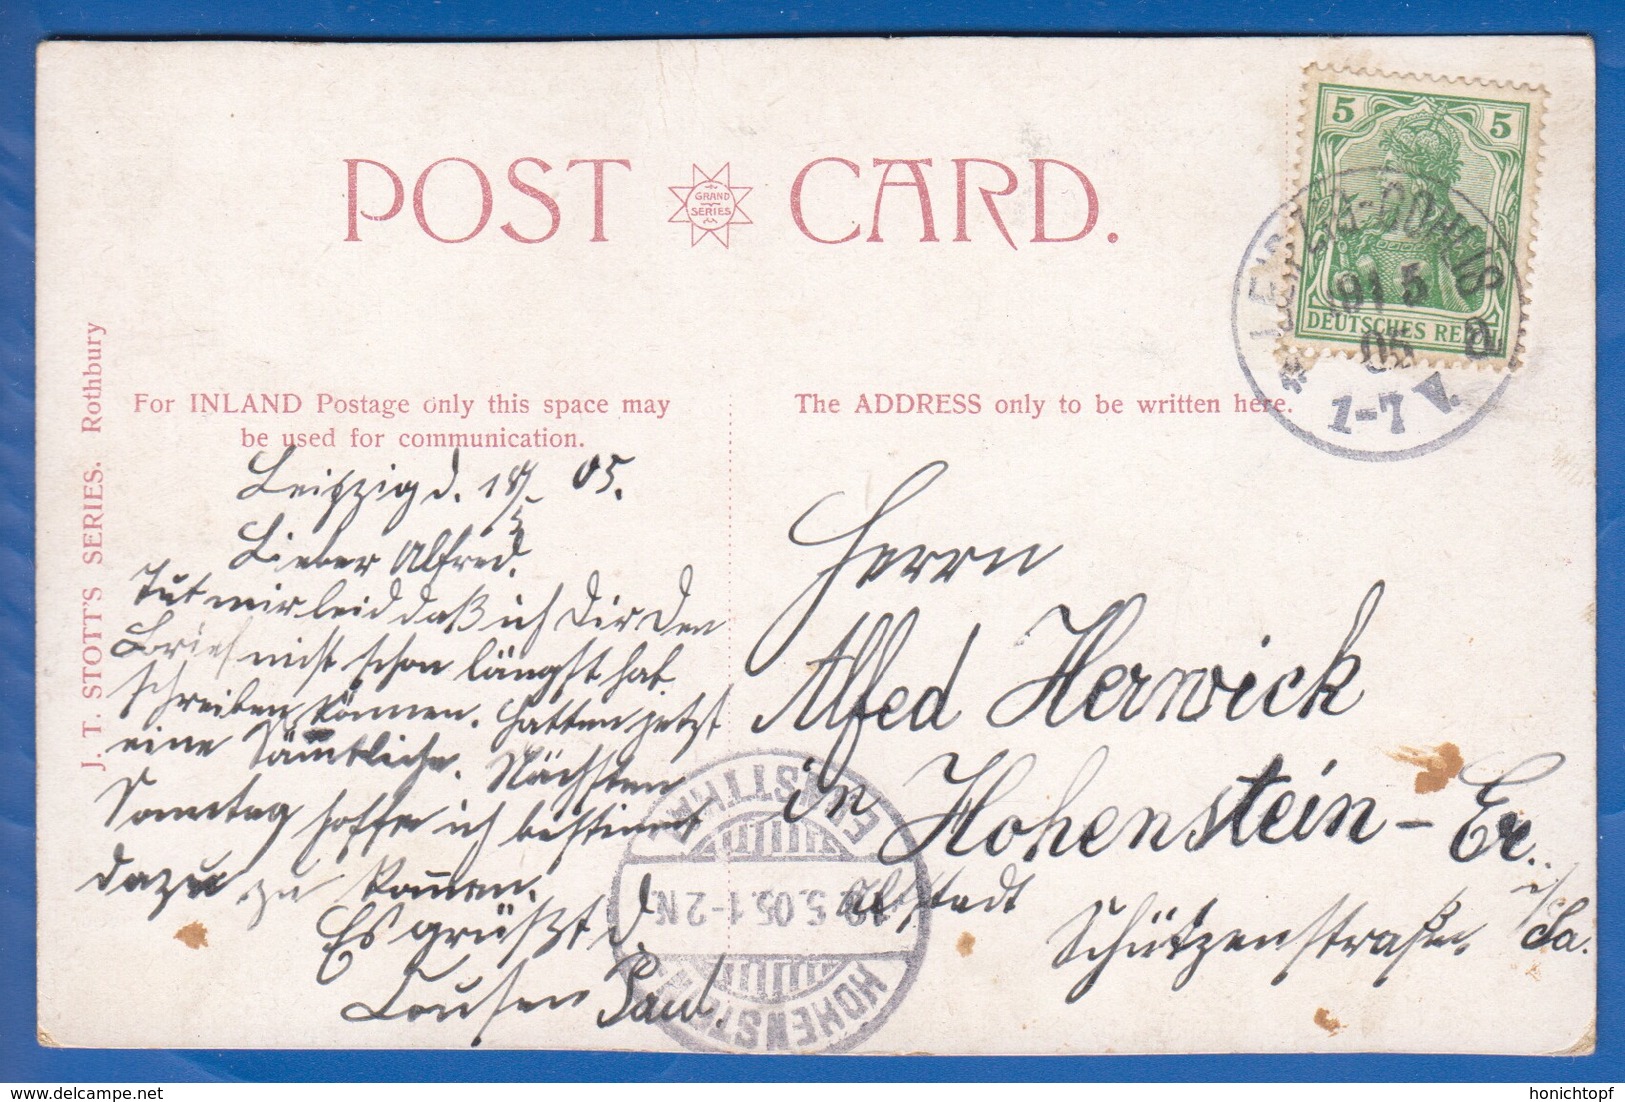 POST CARD.
GRAND
SERIES
5 5
DEUTSCHES RE
LEIPZIG-GOHLIS
19 1 5
05
a
1-7 V.
J. T. STOTT'S SERIES. Rothbury
For INLAND Postage only this space may
be used for communication.
The ADDRESS only to be written here.
Leipzig d. 18/5 05.
Lieber Alfred!
Tut mir leid daß ich Dir den
Brief nicht schon längst hab
schreiben können. Hatten jetzt
eine Nächsten
Sonntag hoffe ich bestimmt
dazu zu kommen.
Es grüßt d
Paul.
Herrn
Alfed Herwick
in Hohenstein-Er.
Altstadt
i/Sa.
Schützenstraße
ERNSTTHAL
5.05.1-2N.
HOHENSTEIN
honichtopf